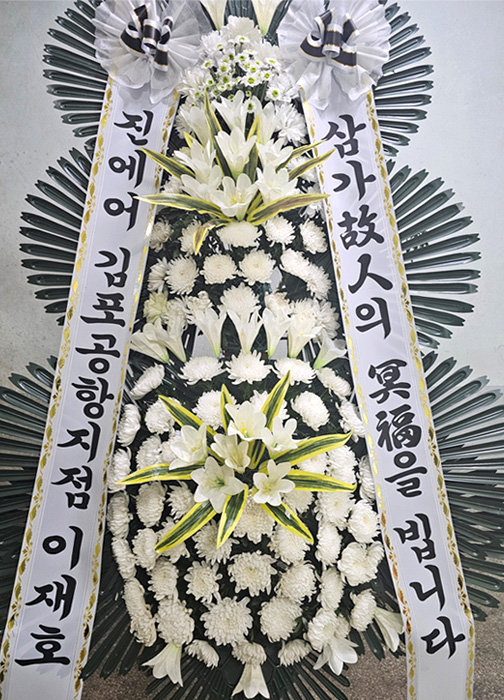 진에어 김포공항지점 이재호
삼가 故人의 冥福을 빕니다